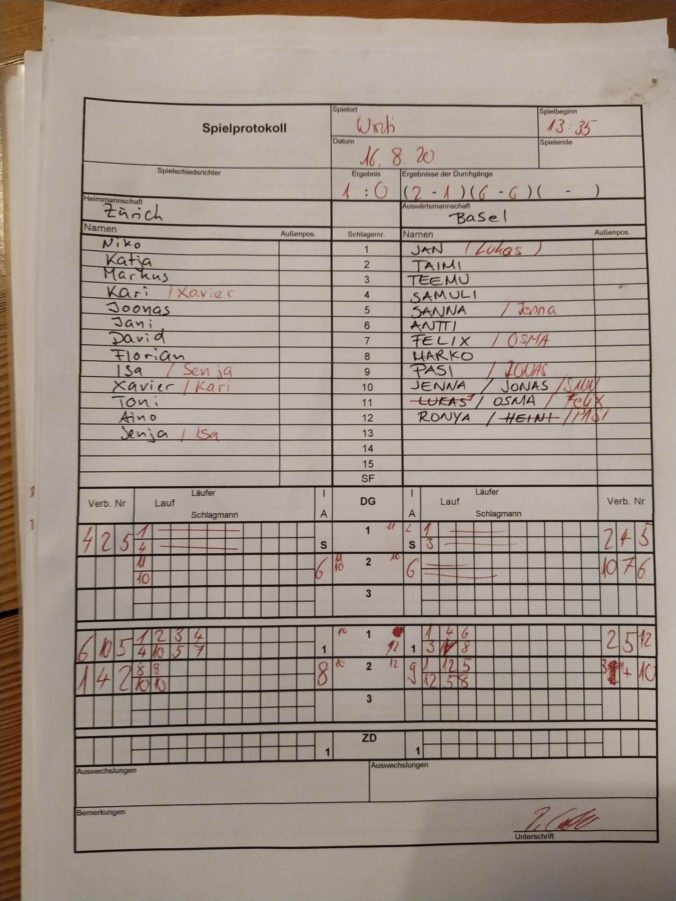 Spielprotokoll
Spielort
Spielbeginn
13:35
Datum
Spielende
16. 8. 20
Spielschiedsrichter
Ergebnis
Ergebnisse der Durchgänge
1 : 0 (2 - 1)(6 - 6)( - )
Heimmannschaft
Zürich
Auswärtsmannschaft
Basel
Namen Außenpos. Schlagernr. Namen Außenpos.
Niko 1 JAN (Lukas)
Katja 2 TAIMI
Markus 3 TEEMU
Kari / Xavier 4 SAMULI
Joonas 5 SANNA / Jenna
Jani 6 ANTTI
David 7 FELIX / OSMA
Florian 8 MARKO
Isa / Senja 9 PASI / JONAS
Xavier / Kari 10 JENNA / JONAS
Toni 11 LUKAS / OSMA / Felix
Aino 12 RONYA / HEINI / PASI
Senja / Isa 13
14
15
SF
Verb. Nr Läufer I DG I Läufer Verb. Nr
Lauf Lauf
Schlagmann A A Schlagmann
4 2 5 1 S 1 11 S 1 2 + 5
4 3
11 6 11 2 6 10 7 6
10 10
3
6 10 5 1 2 3 4 1 10 1 12 1 1 4 6 2 5 12
4 10 5 7 3 8
1 4 2 8 8 8 10 2 12 9 1 12 5 + 10
10 10 12 5 8
3
1 ZD 1
Auswechslungen
Auswechslungen
Bemerkungen
Unterschrift